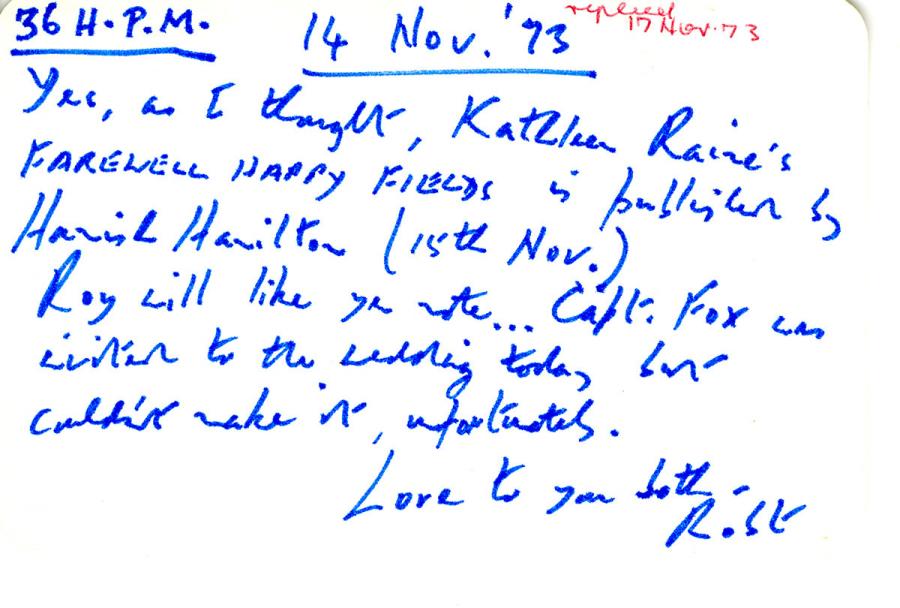 36 H.P.M.
14 Nov. '73
replied
17 Nov. 73
Yes, as I thought, Kathleen Raine's
FAREWELL HAPPY FIELDS is published by
Hamish Hamilton (15th Nov.)
Roy will like yr note... Capt. Fox was
invited to the wedding today but
couldn't make it, unfortunately.
Love to you both –
Robt